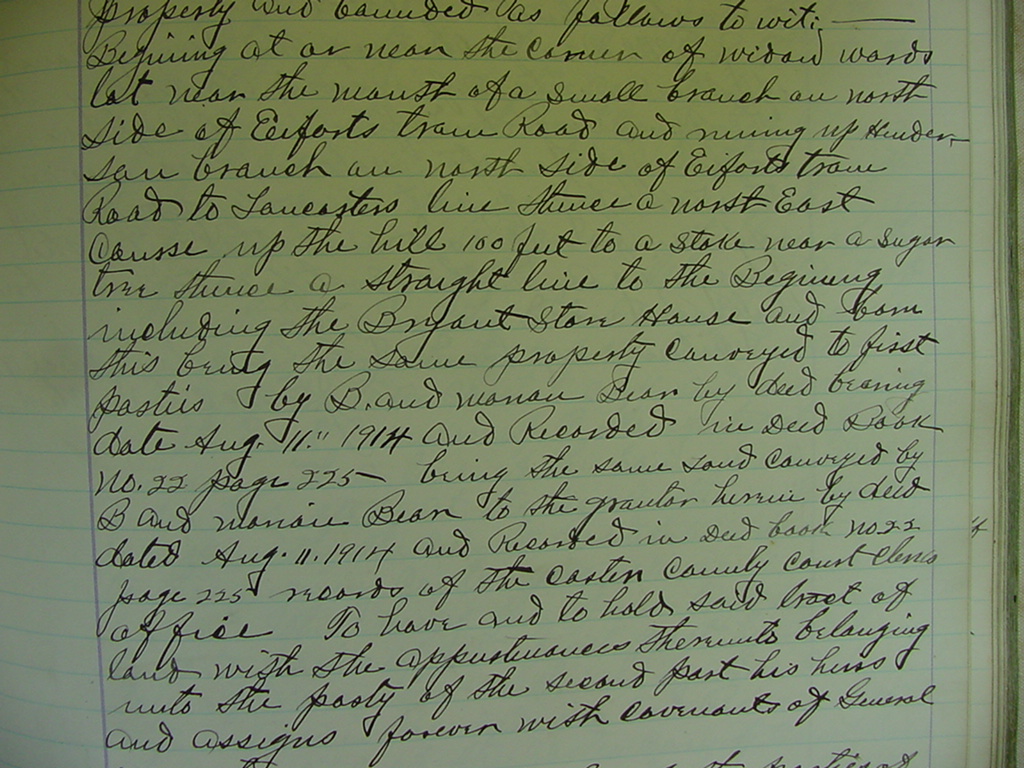 property and bounded as follows to wit:
Begining at or near the corner of widow wards
lot near the mouth of a small branch on north
side of Eiforts tram Road and runing up Hender-
son branch on north side of Eiforts tram
Road to Lancasters line thence a north East
course up the hill 100 feet to a stake near a sugar
tree thence a straight line to the Begining
including the Bryant Store House and barn
this being the same property conveyed to first
parties by B. and Bear by deed bearing
date Aug. 11." 1914 and Recorded in Deed Book
no. 22 page 225 being the same land conveyed by
B and Bear to the grantor herein by deed
dated Aug. 11. 1914 and Recorded in Deed book no 22
page 225 records of the Carter County Court Clerks
office To have and to hold said tract of
land with the appurtenances thereunto belonging
unto the party of the second part his heirs
and assigns forever with covenants of General
parties of